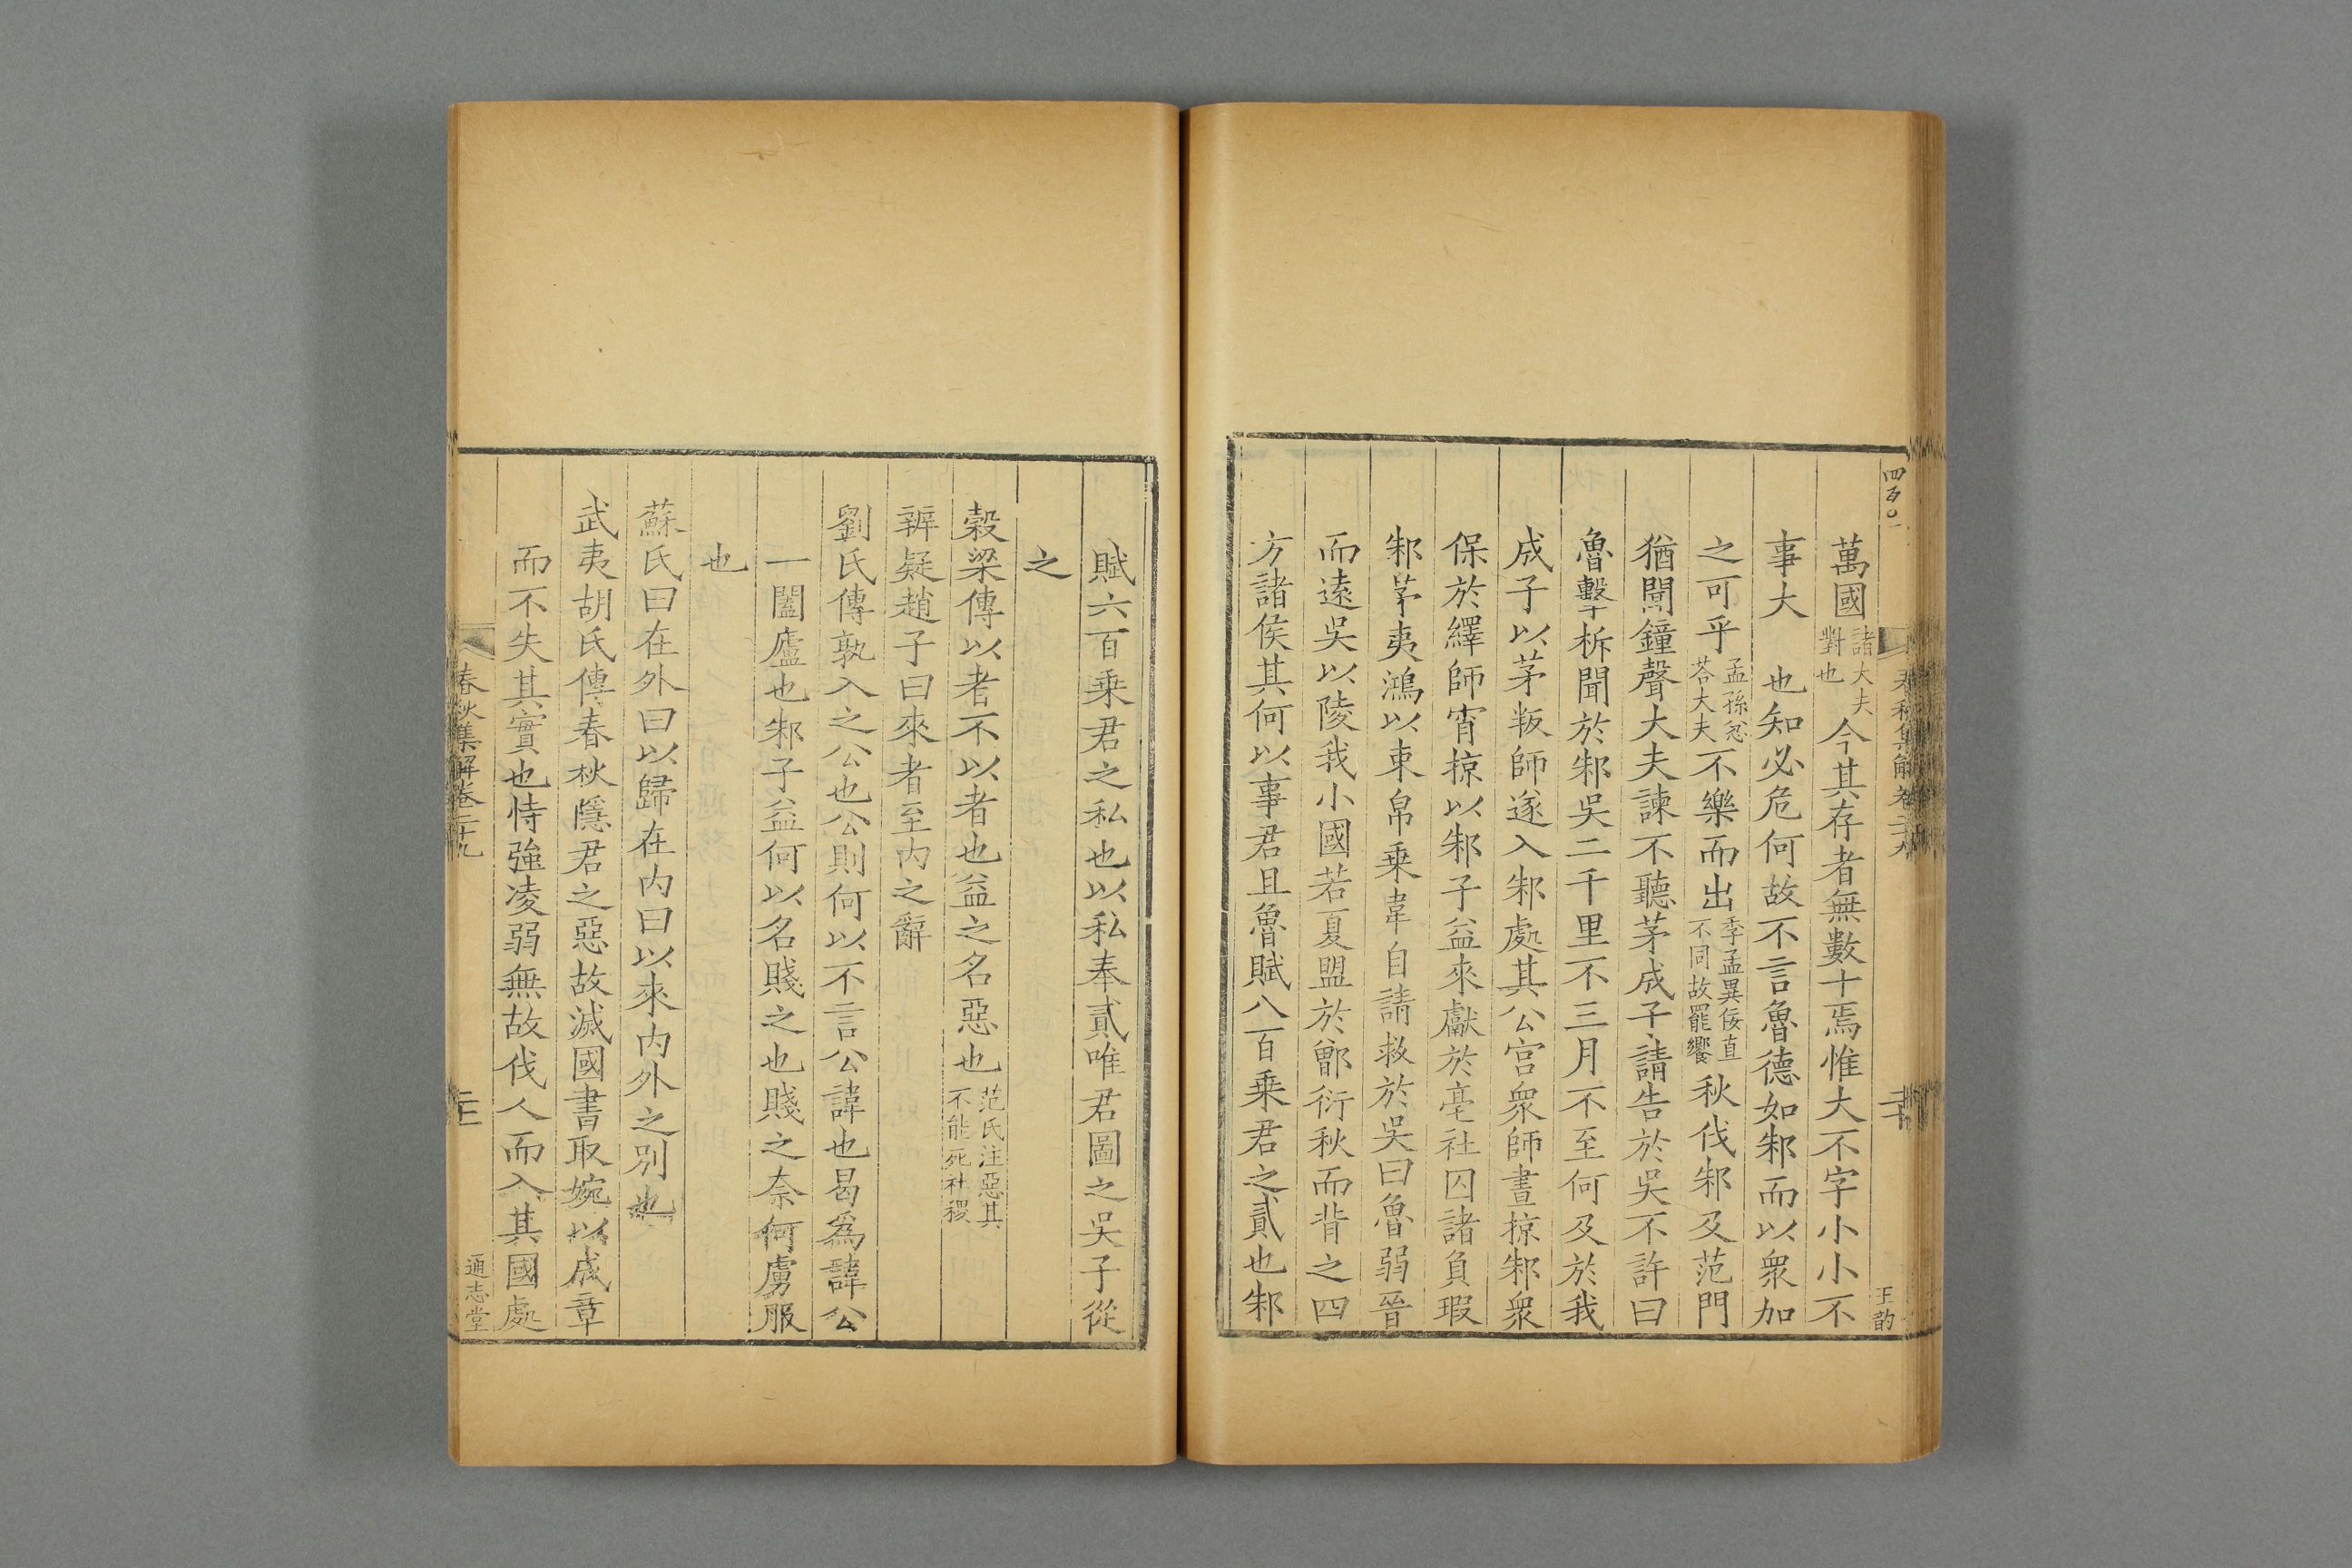 四百〇一
春秋集解卷二十九
王韵
萬國諸大夫對也今其存者無數十焉惟大不字小小不
事大 也知必危何故不言魯德如邾而以衆加
之可乎孟孫忿荅大夫不樂而出季孟異佞直不同故罷饗秋伐邾及范門
猶聞鐘聲大夫諫不聽茅成子請告於吳不許曰
魯擊柝聞於邾吳二千里不三月不至何及於我
成子以茅叛師遂入邾處其公宮衆師晝掠邾衆
保於繹師宵掠以邾子益來獻於亳社囚諸負瑕
邾茅夷鴻以束帛乗韋自請救於吳曰魯弱晉
而遠吳以陵我小國若夏盟於鄫衍秋而背之四
方諸侯其何以事君且魯賦八百乗君之貳也邾
賦六百乗君之私也以私奉貳唯君圖之吳子從
之
穀梁傳以者不以者也益之名惡也范氏注惡其不能死社稷
辨疑趙子曰來者至内之辭
劉氏傳孰入之公也公則何以不言公諱也曷爲諱公
一闔廬也邾子益何以名賤之也賤之奈何虜服
也
蘇氏曰在外曰以歸在内曰以來内外之別也
武夷胡氏傳春秋隱君之惡故滅國書取婉以成章
而不失其實也恃強凌弱無故伐人而入其國處
春秋集解卷二十九
通志堂